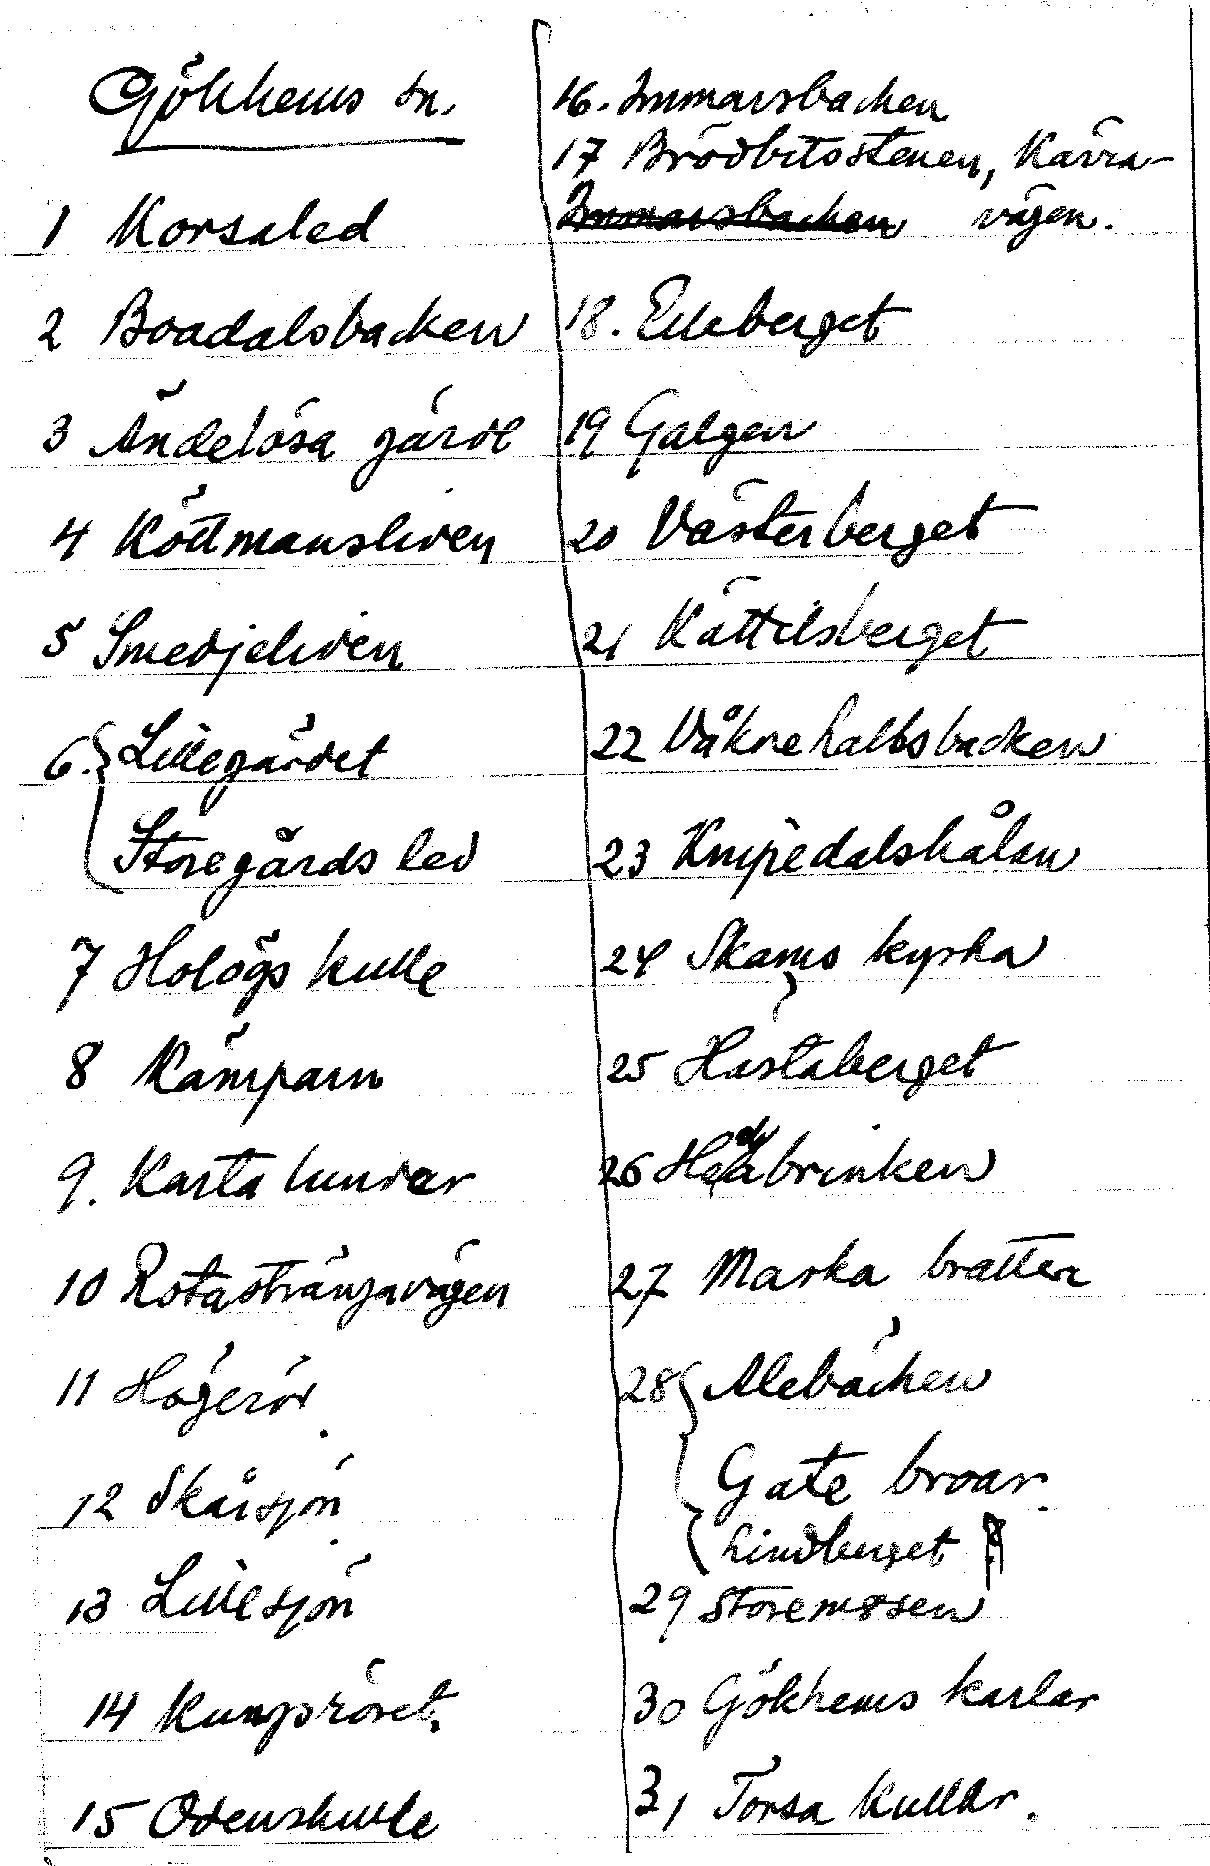 Gökhems sn.
1 Korsaled
2 Boadalsbacken
3 Ändelösa gärde
4 Köttmansliden
5 Smedjeliden
6. Lillegärdet
Storegårds led
7 Holögs kulle
8 Kämparn
9. Karta lundar
10 Rotasträngavägen
11 Högerör
12 Skårsjön
13 Lillesjön
14 Kungsröret.
15 Odenskulle
16. Immarsbacken
17 Brödbitsstenen, Kävra-
Immarsbacken vägen.
18. Ekeberget
19 Galgen
20 Västerberget
21 Kättilsberget
22 Våknehallsbacken
23 Knipedalshålan
24 Skams kyrka
25 Hästaberget
26 brinken
27 Marka bratter
28 Alebäcken
Gate broar.
Lindberget
29 Storemosen
30 Gökhems karlar
31 Torsa kullar.